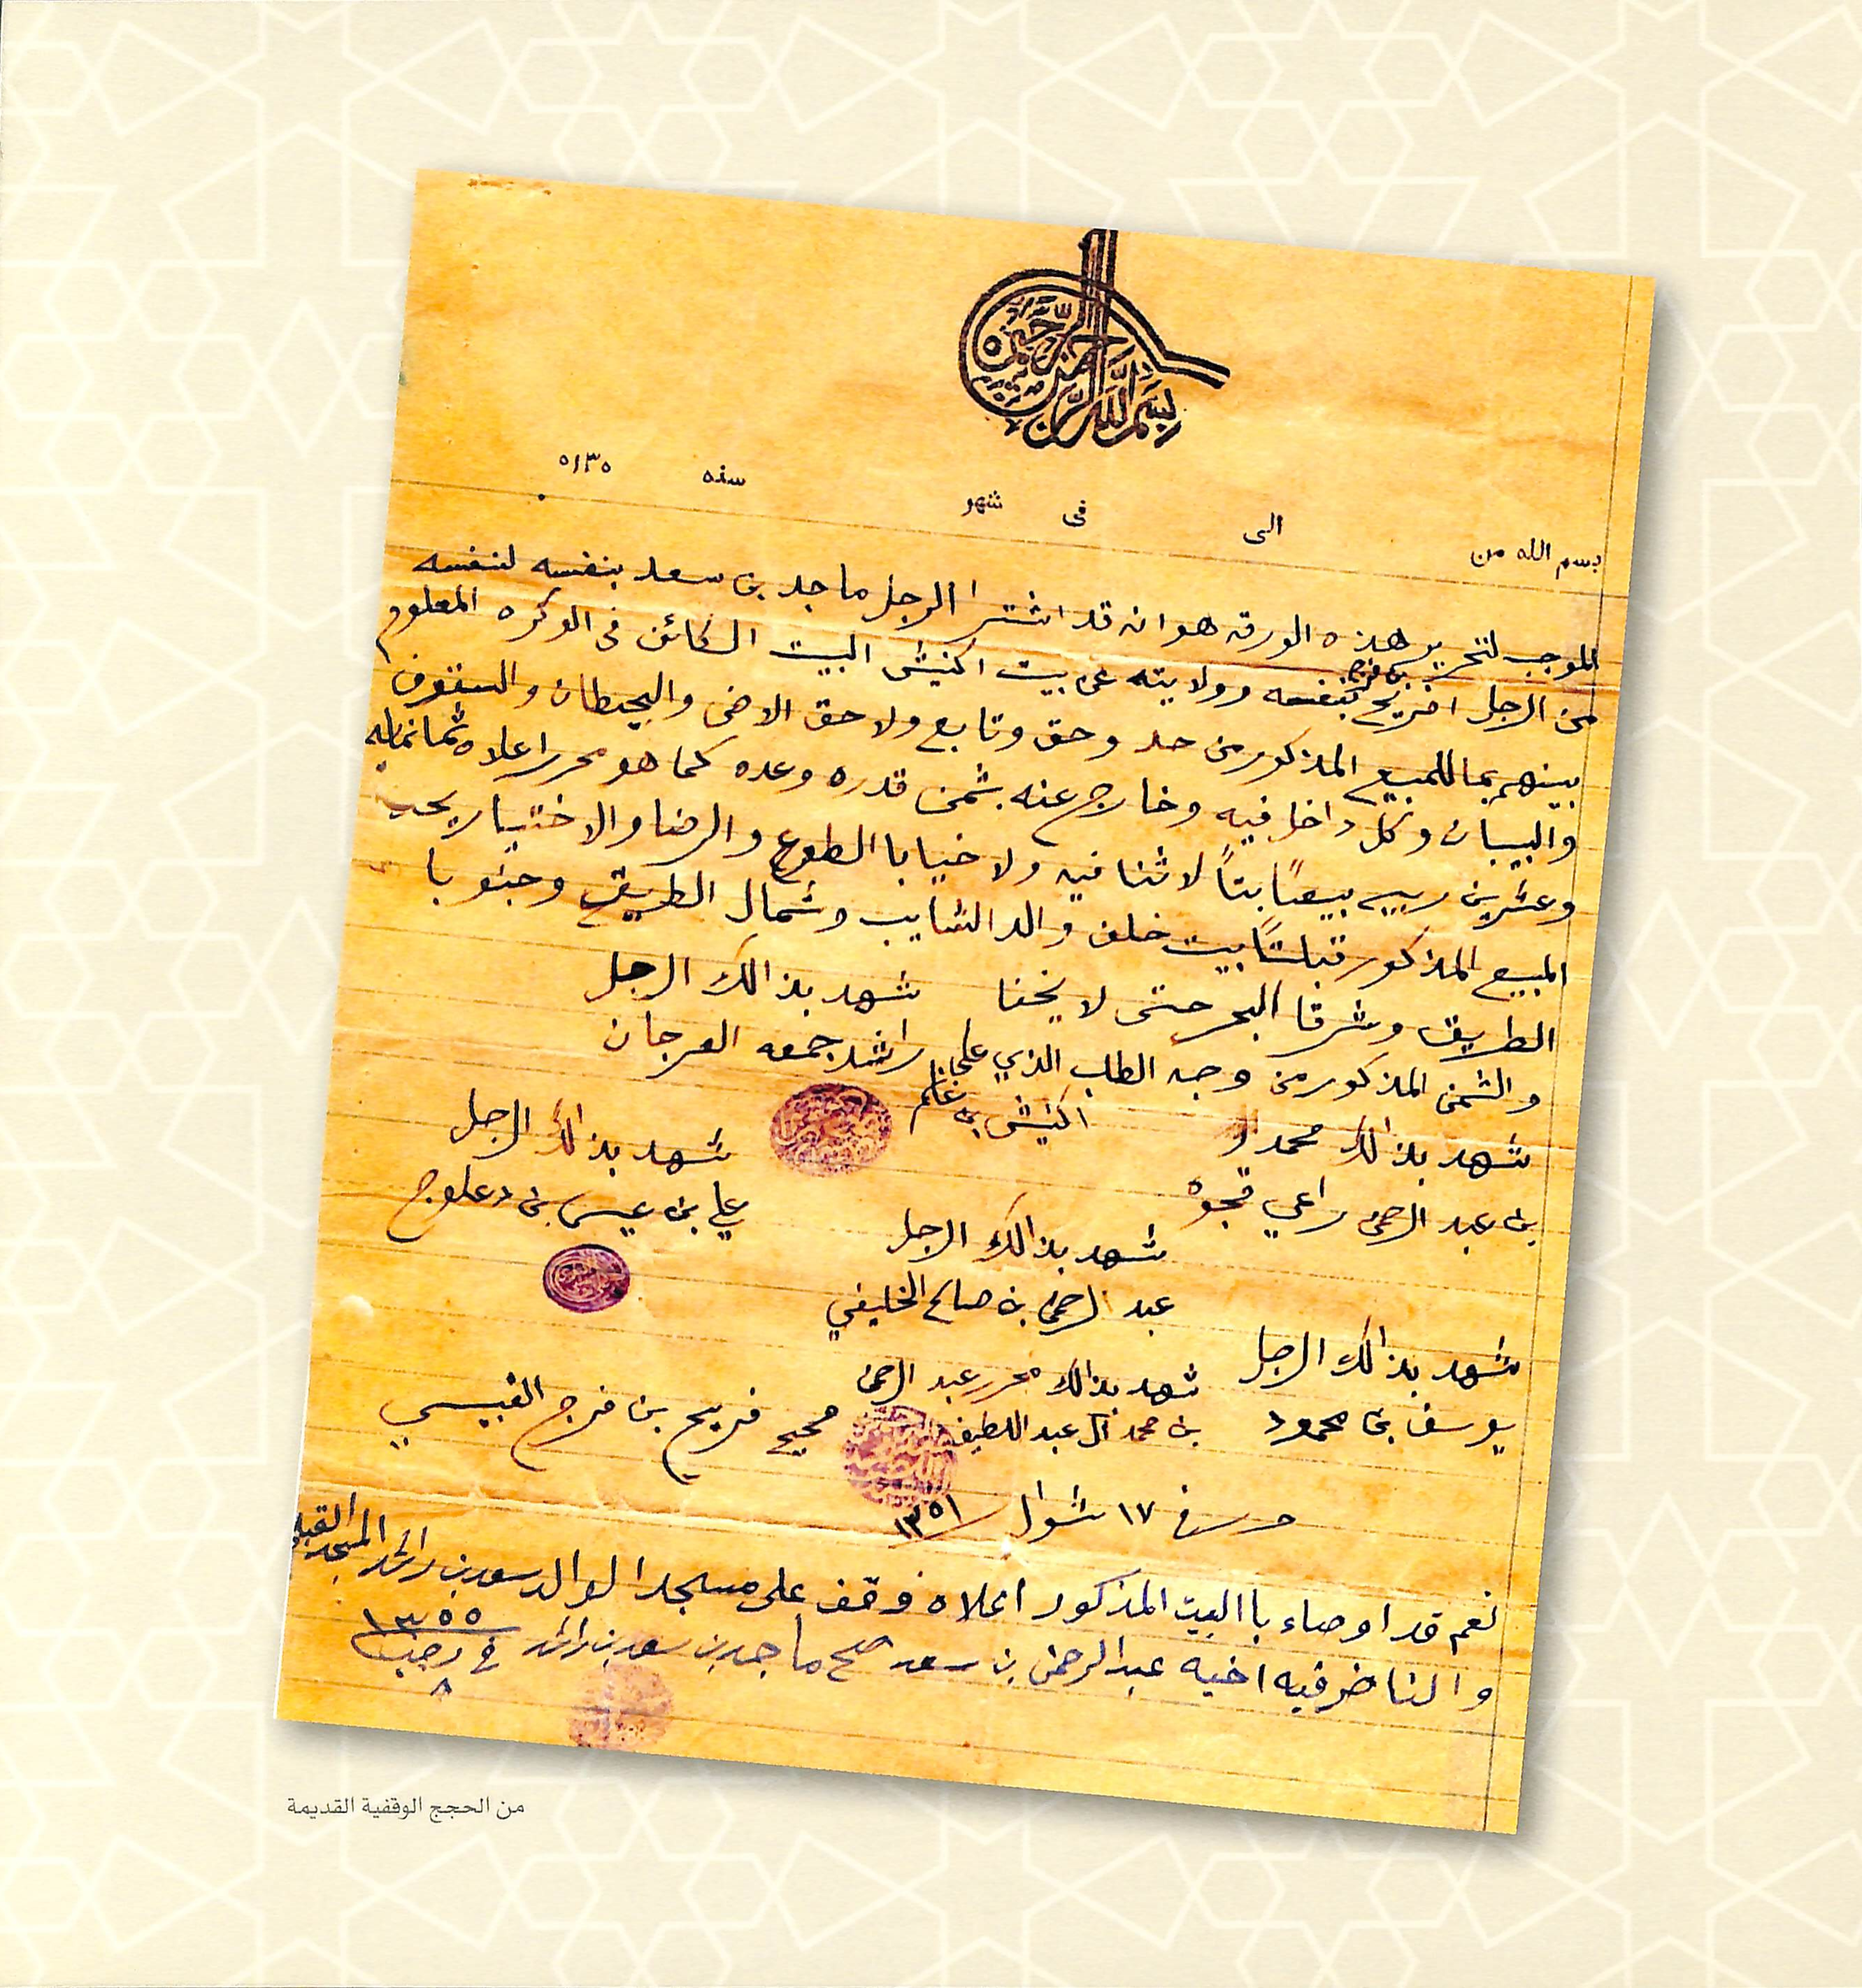 بسم الله الرحمن الرحيم
بسم الله من الى فى شهر سنه ١٣٥٠
الموجب لتحرير هذه الورقه هو انه قد اشترا الرجل ماجد بن سعد بنفسه لنفسه
من الرجل افريج بن فرج بنفسه وولايته على بيت اكنيش البيت الكائن في الوكره المعلوم
بينهم بما للمبيع المذكور من حد وحق وتابع ولا حق الارض والحيطان والسقوف
والبيبان وكل داخل فيه وخارج عنه بثمن قدره وعده كما هو محرر اعلاه ثمانمايه
وعشرين ربيه بيعاً بتاً لا ثنا فيه ولا خيا با الطوع والرضا والاختيار يحد
المبيع المذكور قبلتاً بيت خلف والد الشايب وشمال الطريق وجنوبا
الطريق وشرقا البحر حتى لا يخفا شهد بذالك الرجل
والثمن المذكور من وجه الطلب الذي على راشد جمعه العرجان
اكنيش بن غانم
شهد بذالك محمد
بن عبد الرحمن راعي قجوه
شهد بذالك الرجل
علي بن عيسى بن دعلوج
شهد بذالك الرجل
عبد الرحمن بن صالح الخليفي
شهد بذالك الرجل
يوسف بن محمود
شهد بذالك محرر عبد الرحمن
بن محمد آل عبد اللطيف
صحيح فريج بن فرج القبيسي
حرر في ١٧ شوال ١٣٥١
نعم قد اوصاء با البيت المذكور اعلاه وقف على مسجد الوالد سعد بن راشد المسجد القبلي
والناضر فيه اخيه عبد الرحمن بن سعد صح ماجد بن سعد بن راشد في رجب ١٣٥٥
٨
من الحجج الوقفية القديمة